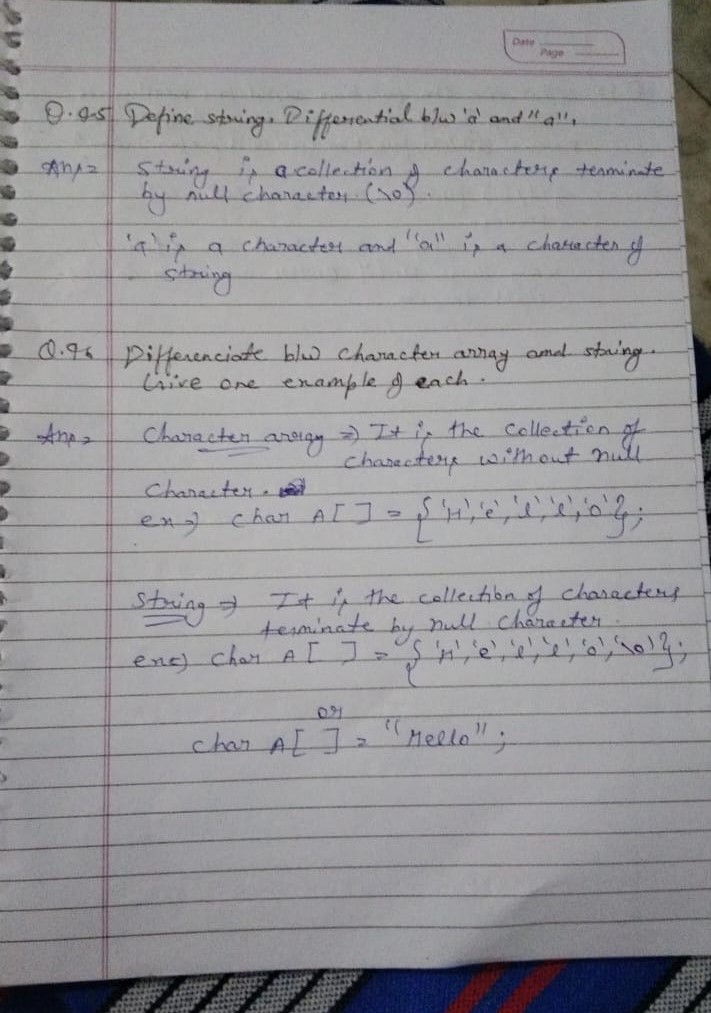 Date
Page
Q.95 Define string. Differential b/w 'a' and "a".
Ans= String is a collection of characters terminate
by null character (\0).
'a' is a character and "a" is a character of
string
Q.96 Differenciate b/w character array and string.
Give one example of each.
Ans= Character array ⇒ It is the collection of
characters without null
character.
ex⇒ char A[ ] = {'H','e','l','l','o'};
String ⇒ It is the collection of characters
terminate by null character.
ex⇒ char A[ ] = {'H','e','l','l','o','\0'};
or
char A[ ] = "Hello";